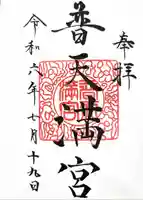 奉拝
普天満宮
令和六年七月十九日